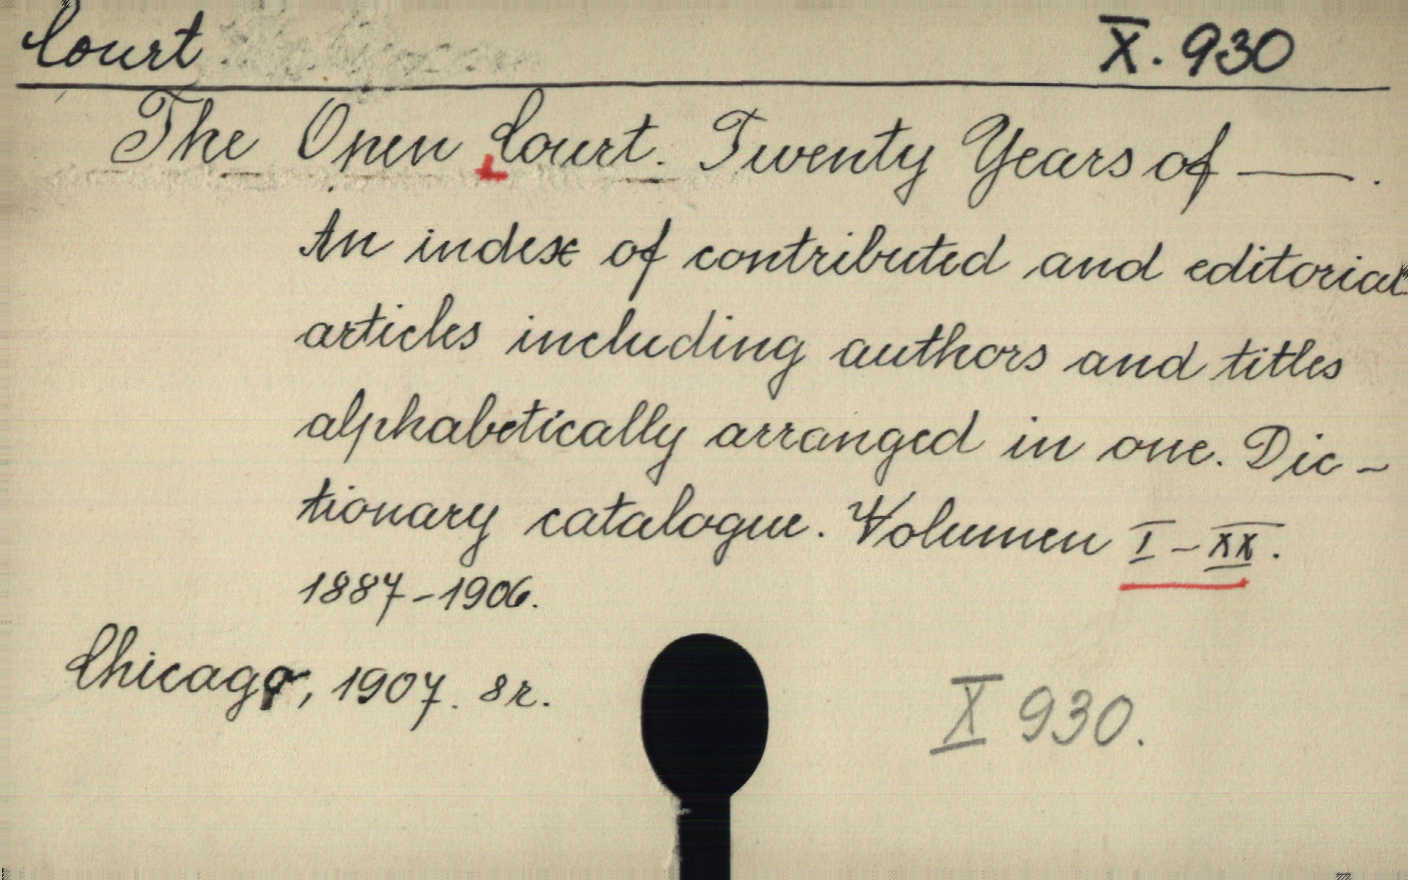 Court X. 930
The Open Court. Twenty Years of —.
An index of contributed and editorial
articles including authors and titles
alphabetically arranged in one. Dic-
tionary catalogue. Volumen I-XX.
1887-1906.
Chicago, 1907. 8r.
X 930.